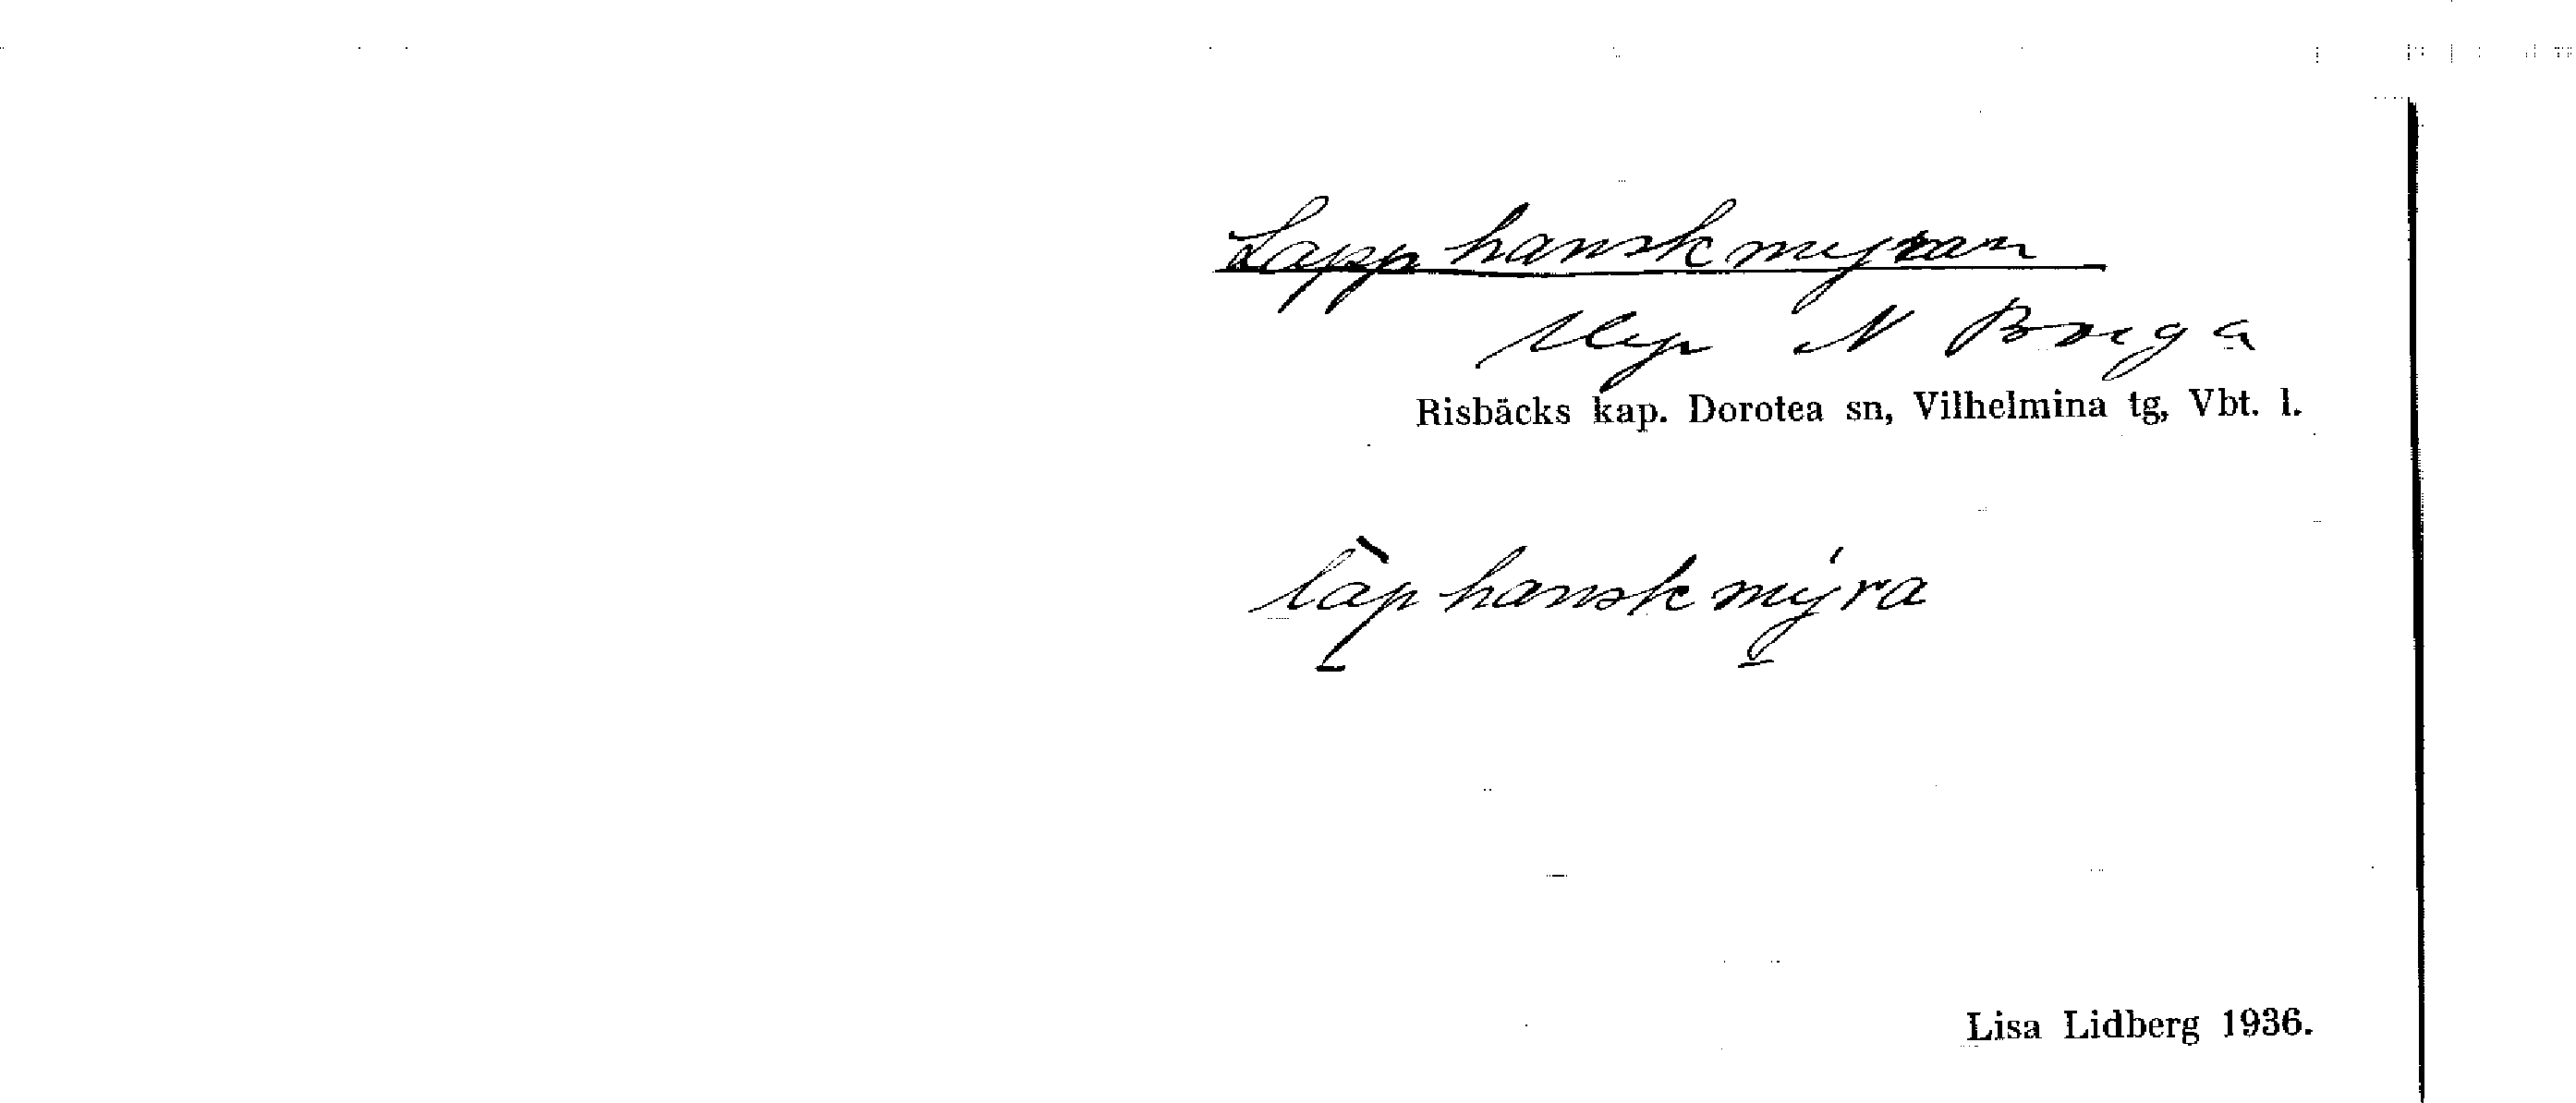 Lapphanskmyran
Myr N Borga
Risbäcks kap. Dorotea sn, Vilhelmina tg, Vbt. l.
làp hansk mýra
Lisa Lidberg 1936.